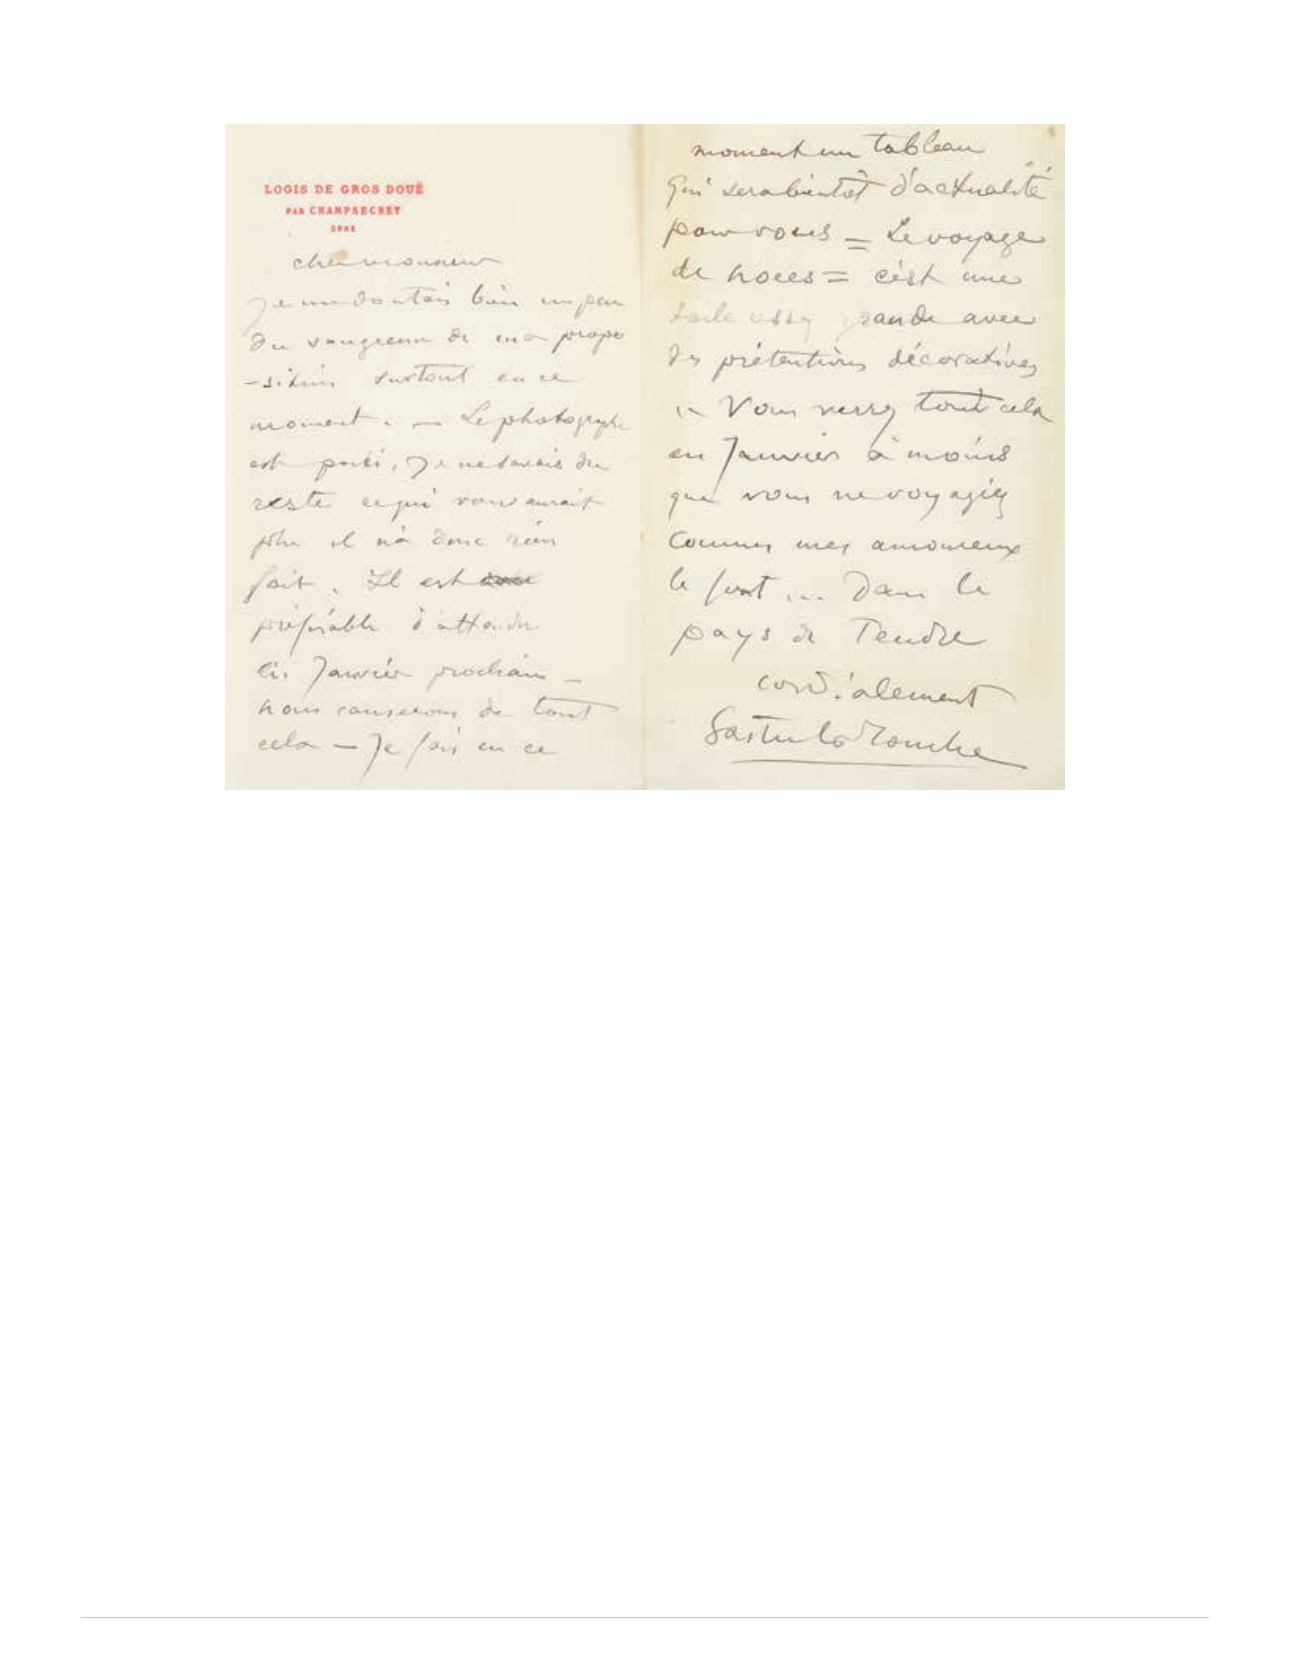 LOGIS DE GROS DOUÉ
PAR CHAMPSECRET
ORNE
cher monsieur
Je me doutais bien un peu
du saugrenu de ma propo
-sition surtout en ce
moment. — Le photographe
est parti, Je ne savais du
reste ce qui vous aurait
plu il n'a donc rien
fait. Il est
préférable d'attendre
Janvier prochain —
nous causerons de tout
cela — Je fais en ce
moment un tableau
qui sera bientôt d'actualité
pour vous = Le voyage
de noces = c'est une
toile assez grande avec
des prétentions décoratives
Vous verrez tout cela
en Janvier à moins
que vous ne voyagiez
comme mes amoureux
le font ... Dans le
pays de Tendre
cordialement
Gaston La Touche